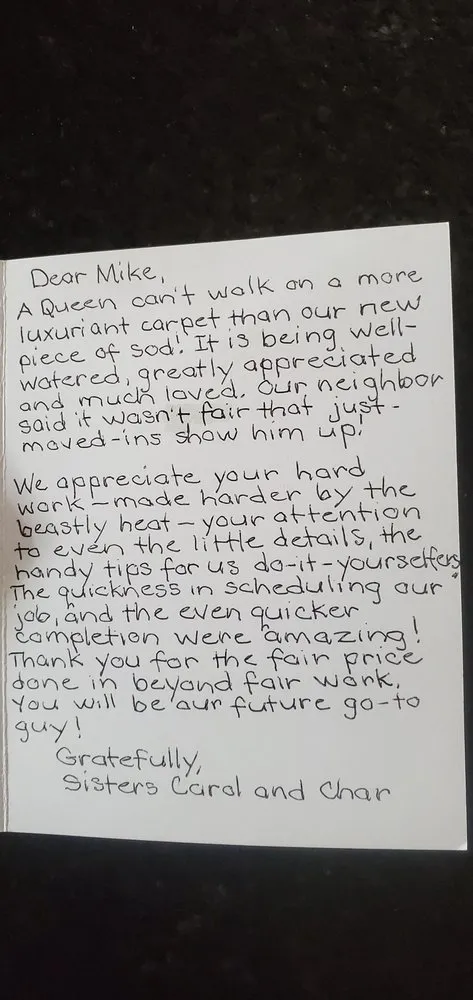 Dear Mike,
A Queen can't walk on a more
luxuriant carpet than our new
piece of sod! It is being well-
watered, greatly appreciated
and much loved. Our neighbor
said it wasn't fair that just-
moved-ins show him up!
We appreciate your hard
work—made harder by the
beastly heat—your attention
to even the little details, the
handy tips for us do-it-yourselfers.
The quickness in scheduling our
job, and the even quicker
completion were amazing!
Thank you for the fair price
done in beyond fair work.
You will be our future go-to
guy!
Gratefully,
Sisters Carol and Char